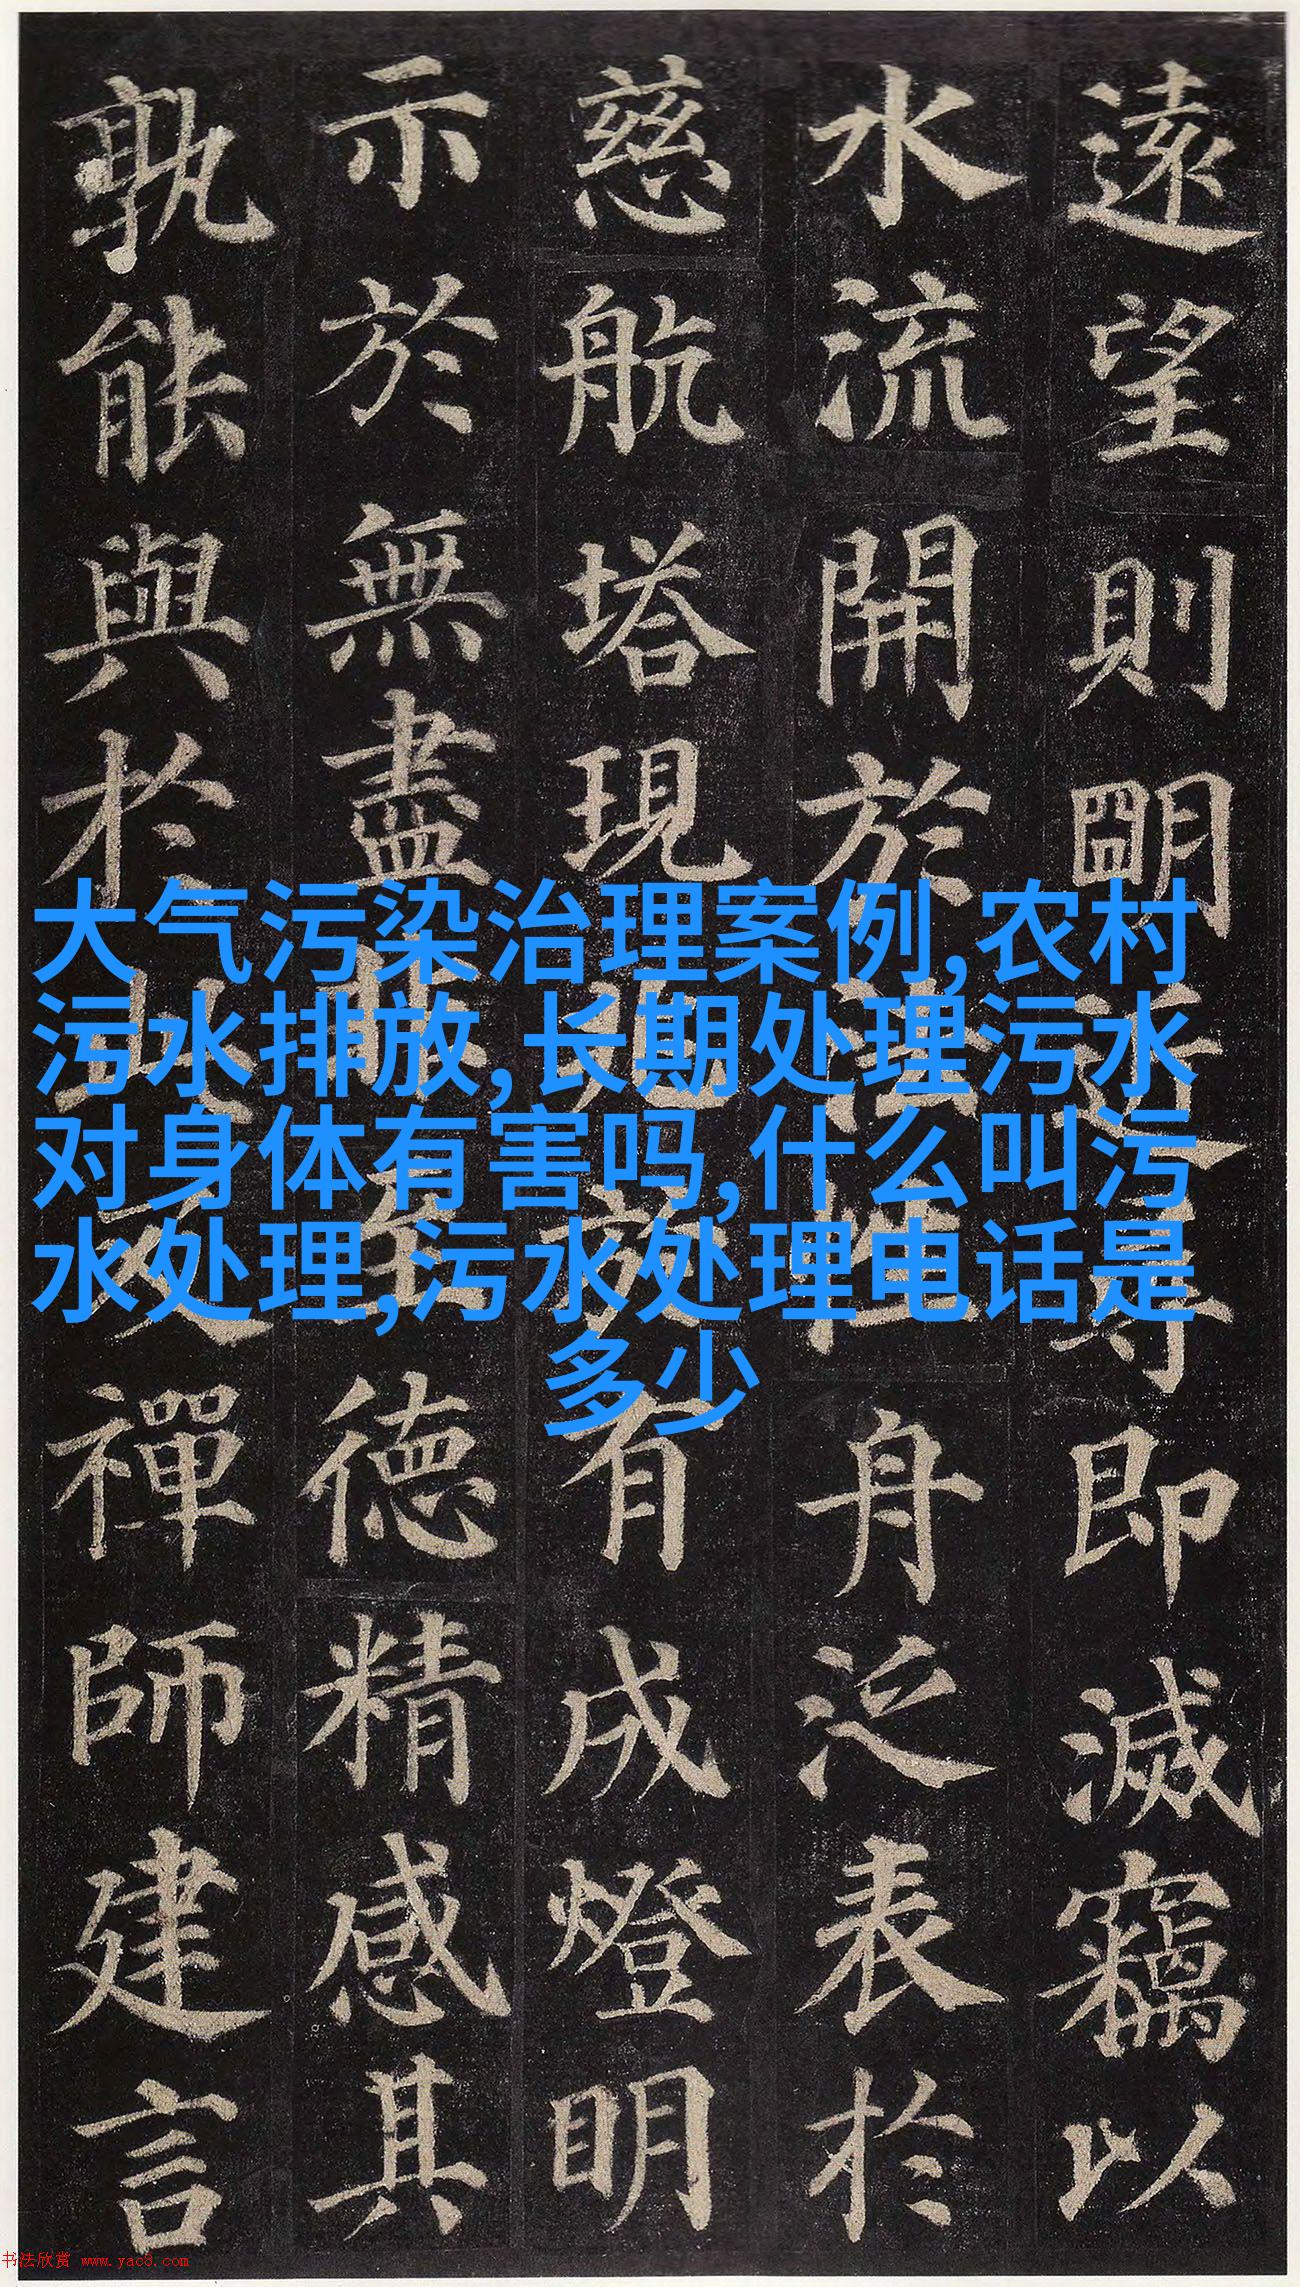 遠望則明近尋即滅竊以
水流開於法性舟泛表於
慈航塔現兆於有成燈明
示於無盡非至德精感其
孰能與於此及禪師建言
大气污染治理案例,农村
污水排放,长期处理污水
对身体有害吗,什么叫污
水处理,污水处理电话是
多少
书法欣赏 www.yac8.com